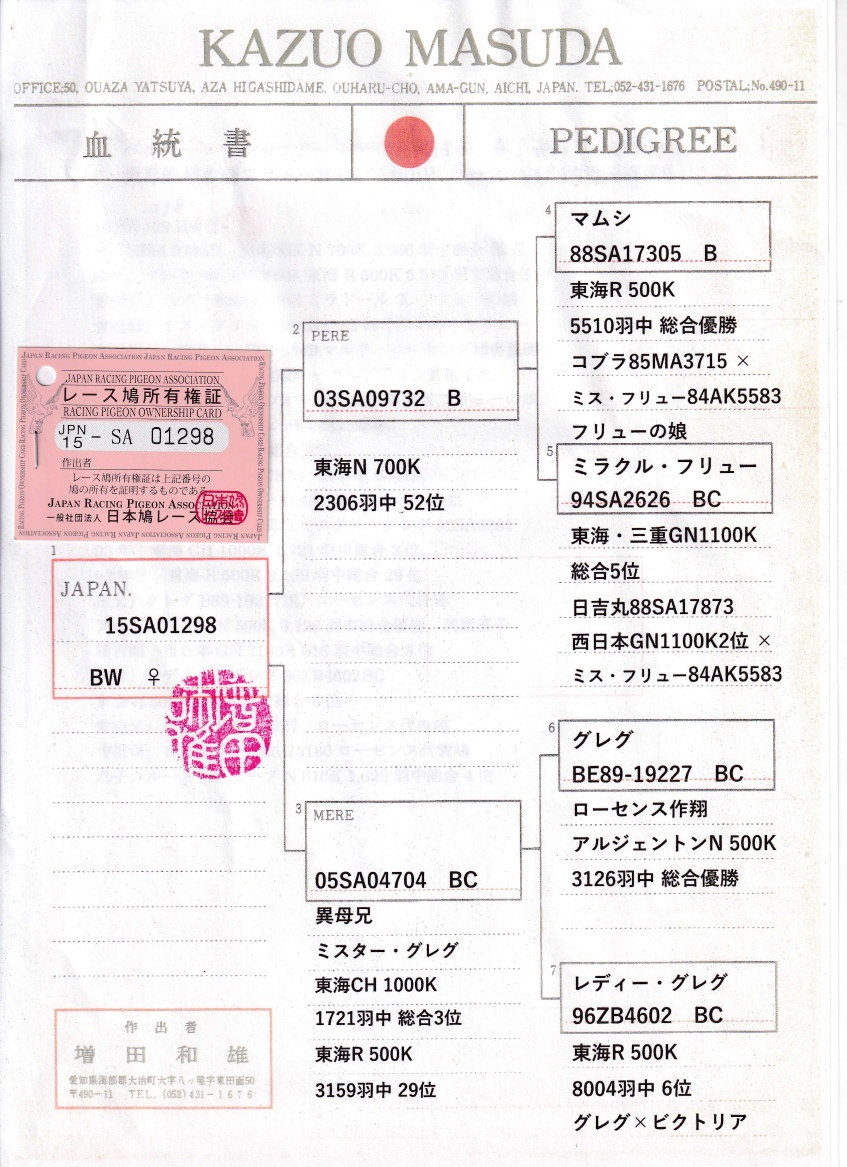 KAZUO MASUDA
OFFICE;50, OUAZA YATSUYA, AZA HIGASHIDAME, OUHARU-CHO, AMA-GUN, AICHI, JAPAN. TEL;052-431-1676 POSTAL;No.490-11
血統書
PEDIGREE
JAPAN RACING PIGEON ASSOCIATION JAPAN RACING PIGEON ASSOCIATION
JAPAN RACING PIGEON ASSOCIATION
レース鳩所有権証
RACING PIGEON OWNERSHIP CARD
JPN
15 - SA 01298
作出者
レース鳩所有権証は上記番号の
鳩の所有を証明するものである
JAPAN RACING PIGEON ASSOCIATION
一般社団法人 日本鳩レース協会
1
JAPAN.
15SA01298
BW ♀
2
PERE
03SA09732 B
東海N 700K
2306羽中 52位
3
MERE
05SA04704 BC
異母兄
ミスター・グレグ
東海CH 1000K
1721羽中 総合3位
東海R 500K
3159羽中 29位
4
マムシ
88SA17305 B
東海R 500K
5510羽中 総合優勝
コブラ85MA3715 ×
ミス・フリュー84AK5583
フリューの娘
5
ミラクル・フリュー
94SA2626 BC
東海・三重GN1100K
総合5位
日吉丸88SA17873
西日本GN1100K2位 ×
ミス・フリュー84AK5583
6
グレグ
BE89-19227 BC
ローセンス作翔
アルジェントンN 500K
3126羽中 総合優勝
7
レディー・グレグ
96ZB4602 BC
東海R 500K
8004羽中 6位
グレグ×ビクトリア
作出者
増田和雄
愛知県海部郡大治町大字八ッ屋字東田面50
〒490-11 TEL.(052)431-1676